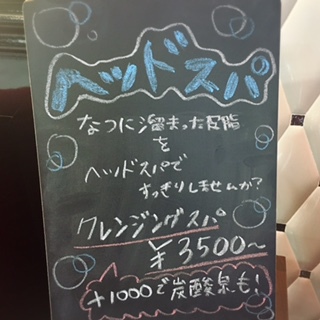 ヘッドスパ
なつに溜まった皮脂
を
ヘッドスパで
すっきりしませんか?
クレンジングスパ
¥3500〜
+1000で炭酸泉も!